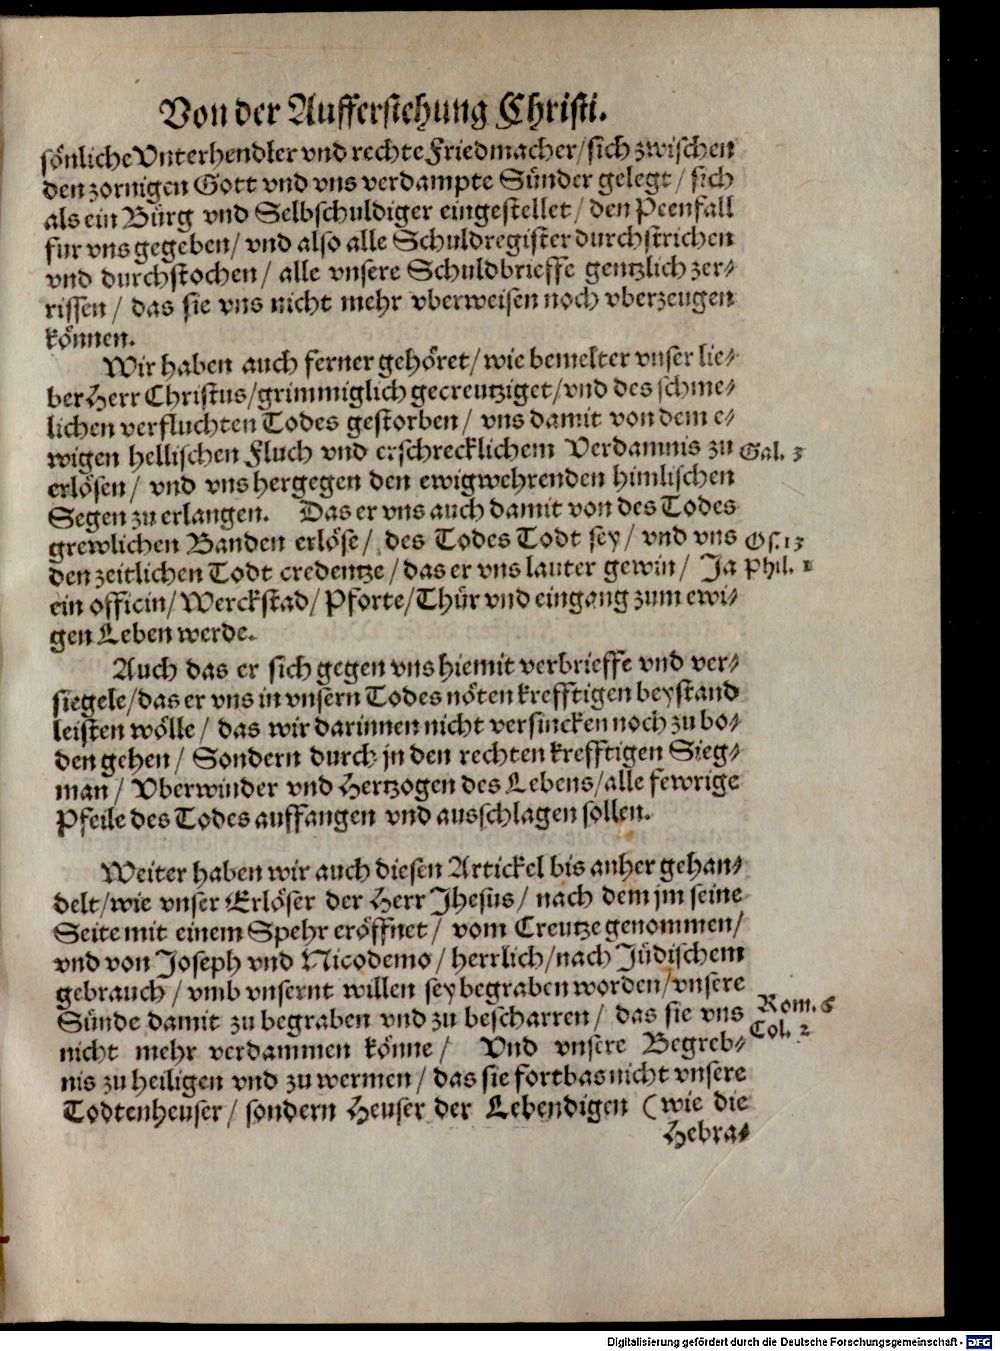 Von der Aufferstehung Christi.
sönliche Vnterhendler vnd rechte Friedmacher/sich zwischen
den zornigen Gott vnd vns verdampte Sünder gelegt/ sich
als ein Bürg vnd Selbschuldiger eingestellet/ den Peenfall
fur vns gegeben/ vnd also alle Schuldregister durchstrichen
vnd durchstochen/ alle vnsere Schuldbrieffe gentzlich zer-
rissen/ das sie vns nicht mehr vberweisen noch vberzeugen
können.
Wir haben auch ferner gehöret/ wie bemelter vnser lie-
ber Herr Christus/grimmiglich gecreutziget/vnd des schme-
lichen verfluchten Todes gestorben/ vns damit von dem e-
wigen hellischen Fluch vnd erschrecklichem Verdamnis zu
Gal. 3
erlösen/ vnd vns hergegen den ewigwehrenden himlischen
Segen zu erlangen. Das er vns auch damit von des Todes
grewlichen Banden erlöse/ des Todes Todt sey/ vnd vns
Os. 13
den zeitlichen Todt credentze/das er vns lauter gewin/ Ja
Phil. 1
ein officin/Werckstad/Pforte/Thür vnd eingang zum ewi-
gen Leben werde.
Auch das er sich gegen vns hiemit verbrieffe vnd ver-
siegele/das er vns in vnsern Todes nöten krefftigen beystand
leisten wölle/ das wir darinnen nicht versincken noch zu bo-
den gehen/ Sondern durch jn den rechten krefftigen Sieg-
man/ Vberwinder vnd Hertzogen des Lebens/alle fewrige
Pfeile des Todes auffangen vnd ausschlagen sollen.
Weiter haben wir auch diesen Artickel bis anher gehan-
delt/wie vnser Erlöser der Herr Jhesus/ nach dem jm seine
Seite mit einem Spehr eröffnet/ vom Creutze genommen/
vnd von Joseph vnd Nicodemo/ herrlich/nach Jüdischem
gebrauch/ vmb vnsernt willen sey begraben worden/vnsere
Sünde damit zu begraben vnd zu bescharren/ das sie vns
Rom. 6
Col. 2
nicht mehr verdammen könne/ Vnd vnsere Begreb-
nis zu heiligen vnd zu wermen/ das sie fortbas nicht vnsere
Todtenheuser/ sondern Heuser der Lebendigen (wie die
Hebra-
Digitalisierung gefördert durch die Deutsche Forschungsgemeinschaft - DFG